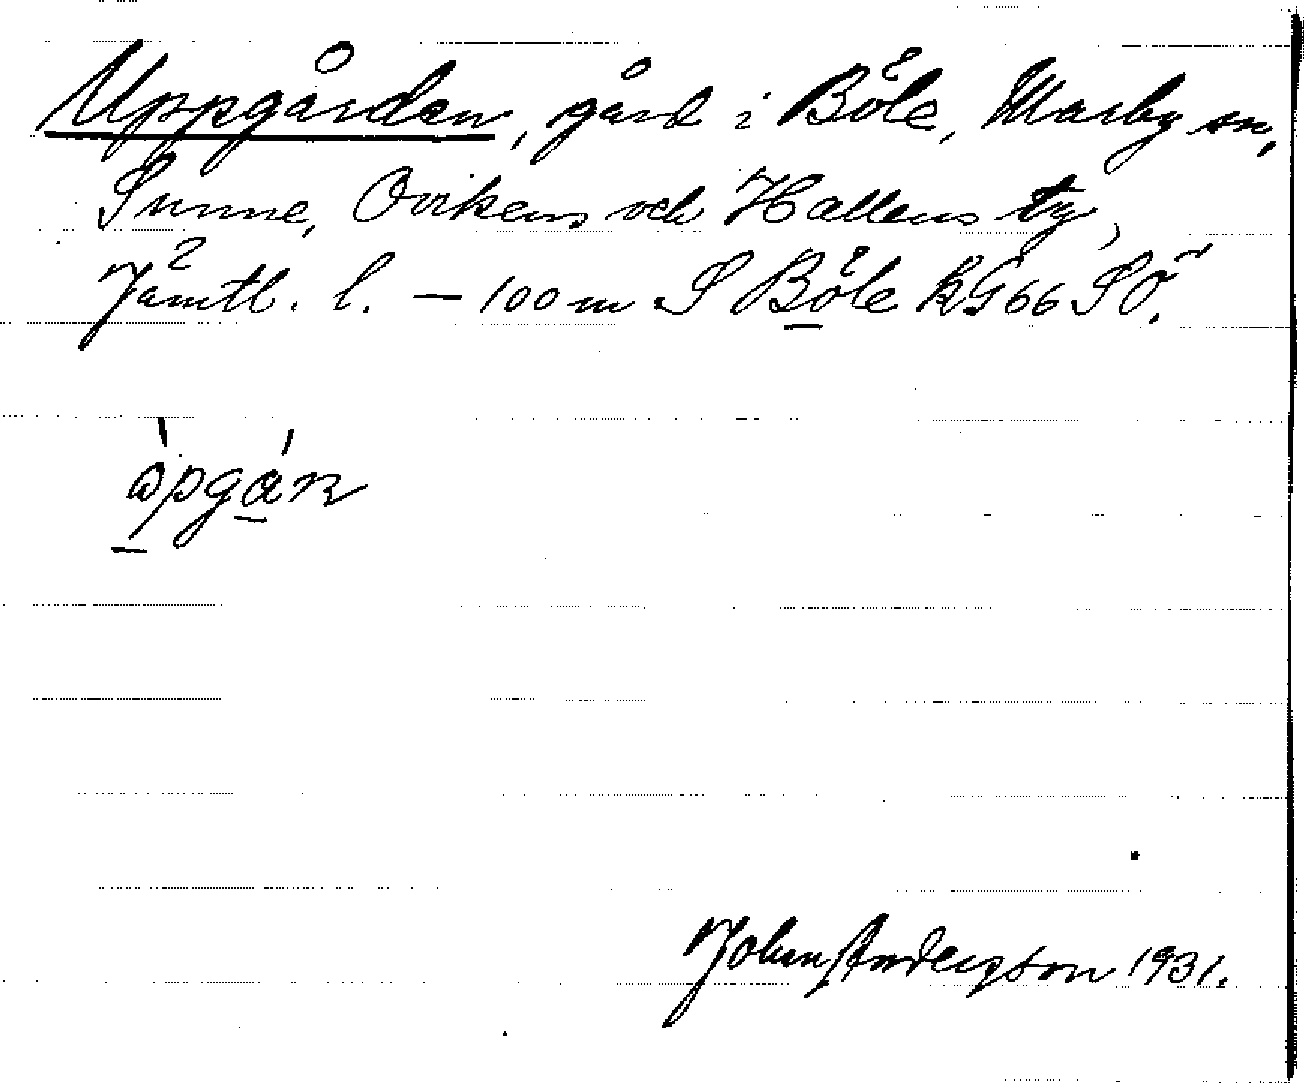 Uppgården, gård i Böle, Marby sn,
Sunne, Ovikens och Hallens tg,
Jämtl. l. — 100 m S Böle kG66 SÖ.
òpgán
John Andersson 1931.